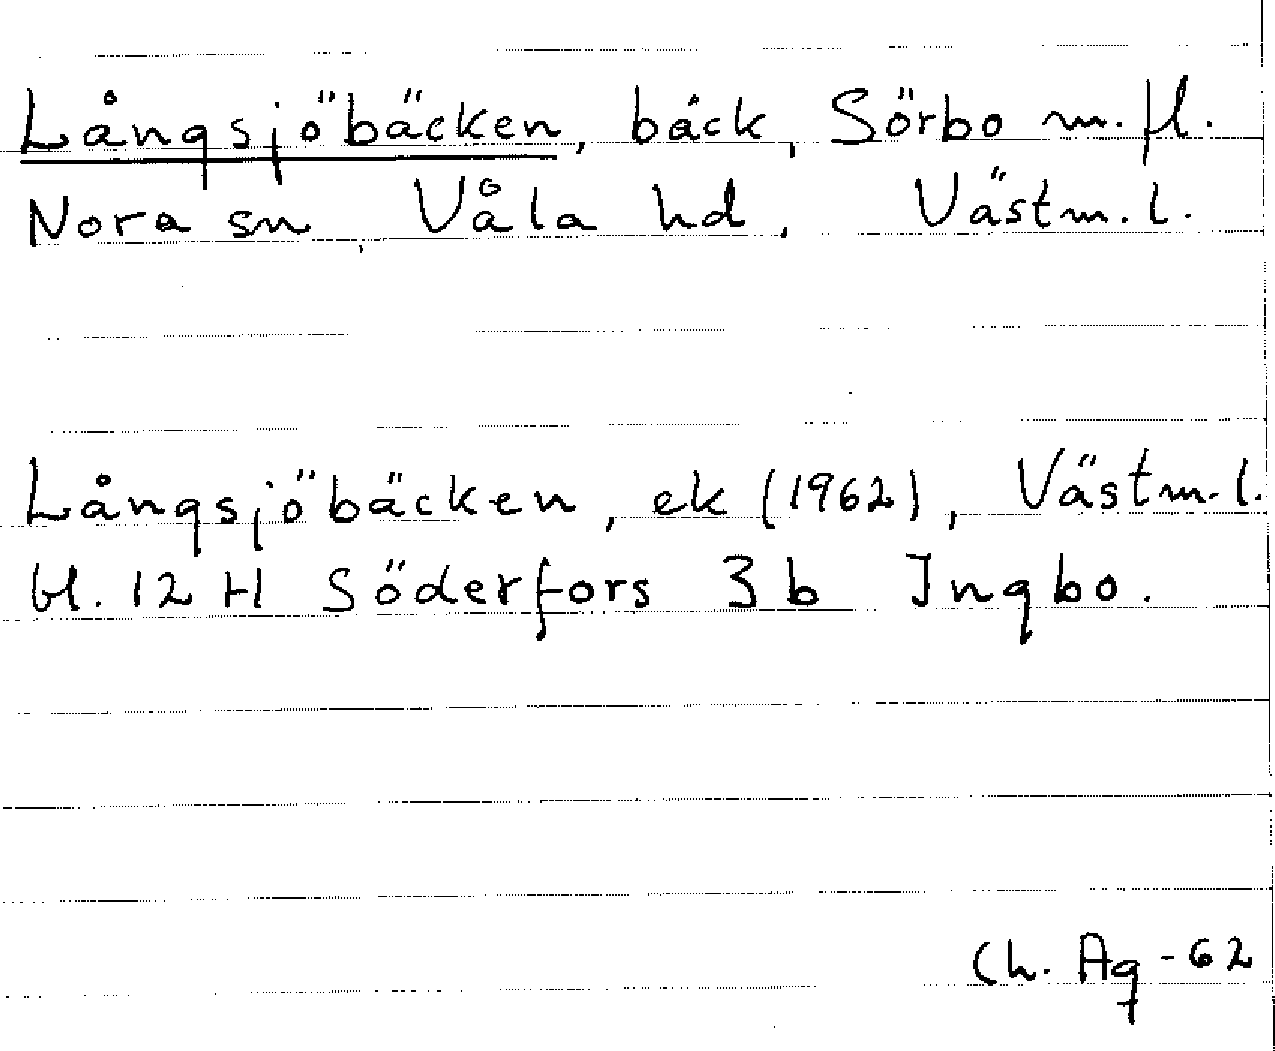 Långsjöbäcken, bäck, Sörbo m.fl.
Nora sn, Våla hd, Västm.l.
Långsjöbäcken, ek (1962), Västm.l.
bl. 12 H Söderfors 3 b Ingbo.
Ch. Ag -62